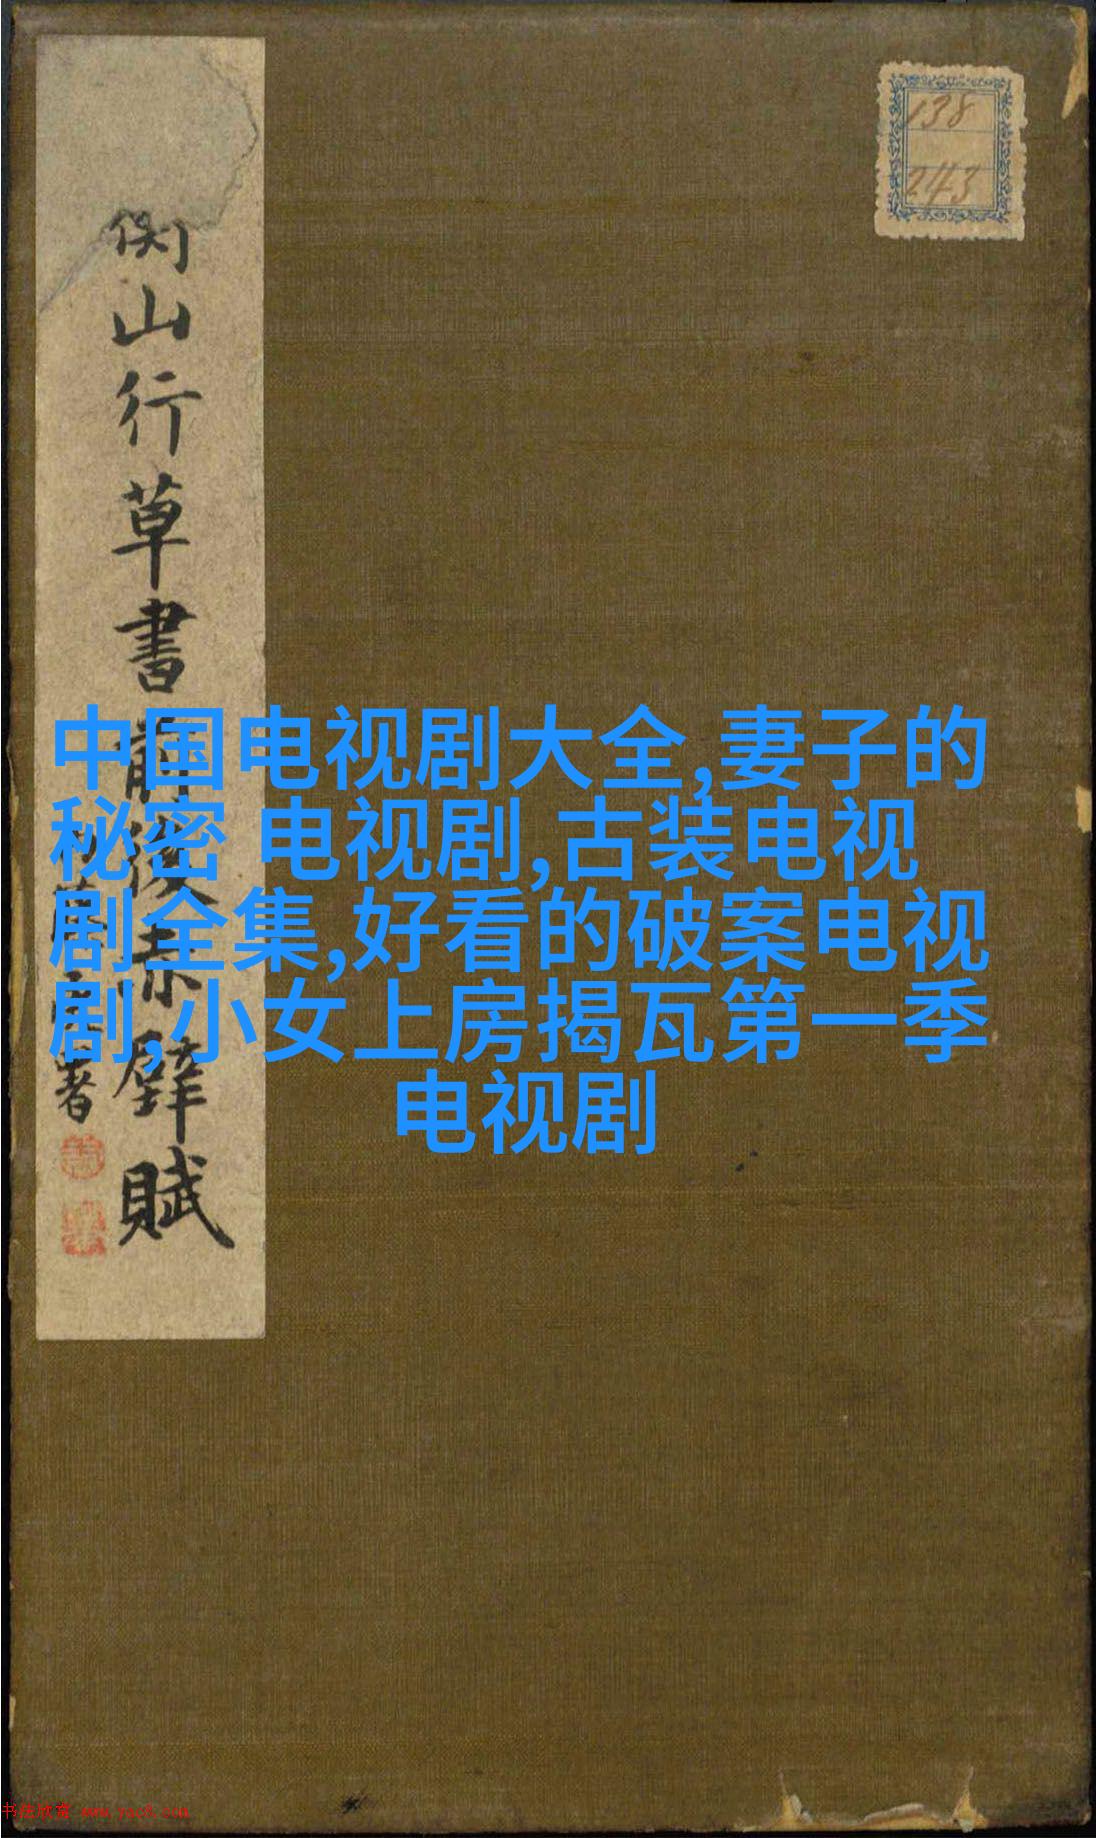 138
243
中国电视剧大全,妻子的
秘密 电视剧,古装电视
剧全集,好看的破案电视
剧,小女上房揭瓦第一季
电视剧
山行草書前後赤壁賦
书法欣赏 www.yac8.com